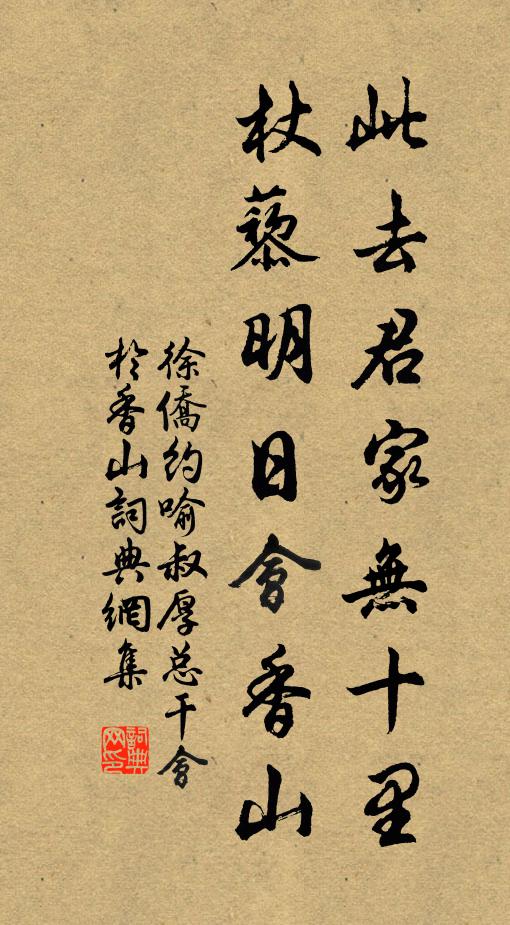 此去君家無十里
杖藜明日會香山
徐僑約喻叔厚总干會
於香山詞典網集
詞典网印